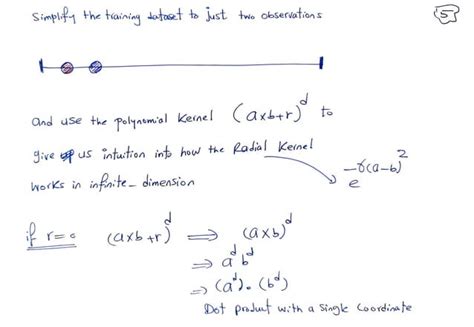 Simplify the training dataset to just two observations
5
and use the polynomial kernel (a x b + r)^d to
give us intuition into how the Radial Kernel
works in infinite-dimension
e^-γ(a-b)^2
if r = 0 (a x b + r)^d ⟹ (a x b)^d
⟹ a^d b^d
⟹ (a^d) . (b^d)
Dot product with a Single Coordinate